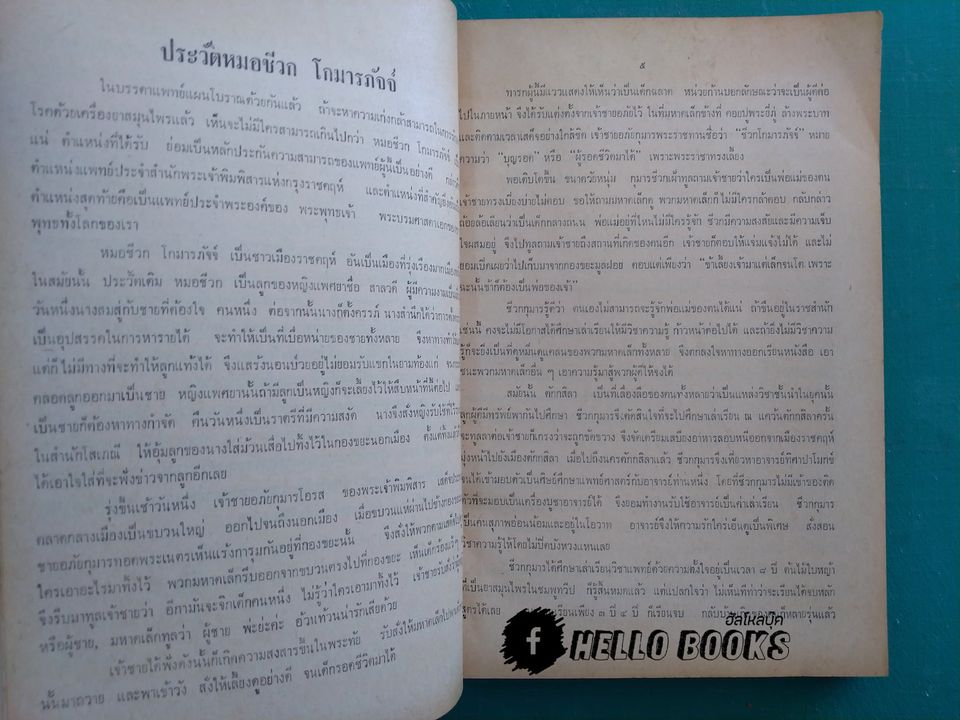 ประวัติหมอชีวก โกมารภัจจ์
ในบรรดาแพทย์แผนโบราณด้วยกันแล้ว ถ้าจะหาความเก่งกล้าสามารถในการ
โรคด้วยเครื่องยาสมุนไพรแล้ว เห็นจะไม่มีใครสามารถเกินไปกว่า หมอชีวก โกมารภัจจ์
แน่ ตำแหน่งที่ได้รับ ย่อมเป็นหลักประกันความสามารถของแพทย์ผู้นี้เป็นอย่างดี
ตำแหน่งแพทย์ประจำสำนักพระเจ้าพิมพิสารแห่งกรุงราชคฤห์ และตำแหน่งที่สำคัญยิ่ง
ตำแหน่งสุดท้ายคือเป็นแพทย์ประจำพระองค์ของ พระพุทธเจ้า พระบรมศาสดาเอกของ
พุทธทั้งโลกของเรา
หมอชีวก โกมารภัจจ์ เป็นชาวเมืองราชคฤห์ อันเป็นเมืองที่รุ่งเรืองมาก
ในสมัยนั้น ประวัติเดิม หมอชีวก เป็นลูกของหญิงแพศยาชื่อ สาลวดี ผู้มีความงาม
วันหนึ่งนางสมสู่กับชายที่ต้องใจ คนหนึ่ง ต่อจากนั้นนางก็ตั้งครรภ์ นางสำนึกได้ว่าการ
เป็นอุปสรรคในการหารายได้ จะทำให้เป็นที่เบื่อหน่ายของชายทั้งหลาย จึงหาทาง
แต่ก็ไม่มีทางที่จะทำให้ลูกแท้งได้ จึงแสร้งนอนป่วยอยู่ไม่ยอมรับแขกในยามท้องแก่ จน
คลอดลูกออกมาเป็นชาย หญิงแพศยานั้นถ้ามีลูกเป็นหญิงก็จะเลี้ยงไว้ให้สืบหน้าที่นี้ต่อไป
เป็นชายก็ต้องหาทางกำจัด คืนวันหนึ่งเป็นราตรีที่มีความสงัด นางจึงสั่งหญิงรับใช้
ในสำนักโสเภณี ให้อุ้มลูกของนางใส่ม้วนเสื่อไปทิ้งไว้ในกองขยะนอกเมือง
ได้เอาใจใส่ที่จะฟังข่าวจากลูกอีกเลย
รุ่งขึ้นเช้าวันหนึ่ง เจ้าชายอภัยกุมารโอรส ของพระเจ้าพิมพิสาร
ตลาดกลางเมืองเป็นขบวนใหญ่ ออกไปจนถึงนอกเมือง เมื่อขบวนแห่ผ่านไปข้าง
ชายอภัยกุมารทอดพระเนตรเห็นแร้งการุมกันอยู่ที่กองขยะนั้น จึงสั่งให้พวก
ใครเอาอะไรมาทิ้งไว้ พวกมหาดเล็กรีบออกจากขบวนตรงไปที่กองขยะ เห็นเด็ก
จึงรีบมาทูลเจ้าชายว่า อีกามันจะจิกเด็กคนหนึ่ง ไม่รู้ว่าใครเอามาทิ้งไว้ เจ้าชาย
หรือผู้ชาย, มหาดเล็กทูลว่า ผู้ชาย พ่ะย่ะคะ อ้วนท้วนน่ารักเสียด้วย
เจ้าชายได้ฟังดังนั้นก็เกิดความสงสารขึ้นในพระทัย รับสั่งให้มหาดเล็ก
นั้นมาถวาย และพาเข้าวัง สั่งให้เลี้ยงดูอย่างดี จนเด็กรอดชีวิตมาได้
๕
ทารกผู้นี้มีแววแสดงให้เห็นว่าเป็นเด็กฉลาด หน่วยก้านบอกลักษณะว่าจะเป็นผู้ดีต่อ
ไปในภายหน้า จึงได้รับแต่งตั้งจากเจ้าชายอภัยไว้ ในที่มหาดเล็กข้างที่ คอยปรนนิบัติ ล้างพระบาท
และติดตามเวลาเสด็จอย่างใกล้ชิด เจ้าชายอภัยกุมารพระราชทานชื่อว่า "ชีวกโกมารภัจจ์" หมาย
ความว่า "บุญรอด" หรือ "ผู้รอดชีวิตมาได้" เพราะพระราชาทรงเลี้ยง
พอเติบโตขึ้น ขนาดวัยหนุ่ม กุมารชีวกเฝ้าทูลถามเจ้าชายว่าใครเป็นพ่อแม่ของตน
เจ้าชายทรงเบี่ยงบ่ายไม่ตอบ ขอให้ถามมหาดเล็กดู พวกมหาดเล็กก็ไม่มีใครกล้าตอบ กลับกล่าว
ถ้อยล้อเลียนว่าเป็นเด็กกลางถนน พ่อแม่อยู่ที่ไหนไม่มีใครรู้จัก ชีวกมีความสงสัยและมีความเจ็บ
ใจผสมอยู่ จึงไปทูลถามเจ้าชายถึงสถานที่เกิดของตนอีก เจ้าชายก็ตอบให้แจ่มแจ้งไม่ได้ และไม่
ยอมเปิดเผยว่าไปเก็บมาจากกองขยะมูลฝอย ตอบแต่เพียงว่า "ข้าเลี้ยงเจ้ามาแต่เล็กจนโต เพราะ
ฉะนั้นข้าก็ต้องเป็นพ่อของเจ้า"
ชีวกกุมารรู้ดีว่า ตนเองไม่สามารถจะรู้จักพ่อแม่ของตนได้แน่ ถ้าขืนอยู่ในราชสำนัก
เช่นนี้ คงจะไม่มีโอกาสได้ศึกษาเล่าเรียนให้มีวิชาความรู้ ก้าวหน้าต่อไปได้ และถ้ายิ่งไม่มีวิชาความ
รู้ก็จะยิ่งเป็นที่ดูหมิ่นดูแคลนของพวกมหาดเล็กทั้งหลาย จึงตกลงใจหาทางออกเรียนหนังสือ เอา
ชนะพวกมหาดเล็กอื่น ๆ เอาความรู้มาสู้พวกผู้ดีให้จงได้
สมัยนั้น ตักกสิลา เป็นที่เลื่องลือของคนทั้งหลายว่าเป็นแหล่งวิชาชั้นนำในยุคนั้น
ลูกผู้ดีมีทรัพย์พากันไปศึกษา ชีวกกุมารจึงตัดสินใจที่จะไปศึกษาเล่าเรียน ณ แคว้นตักกสิลาครั้น
จะทูลลาต่อเจ้าชายก็เกรงว่าจะถูกขัดขวาง จึงจัดเตรียมเสบียงอาหารลอบหนีออกจากเมืองราชคฤห์
มุ่งหน้าไปยังเมืองตักกสิลา เมื่อไปถึงนครตักกสิลาแล้ว ชีวกกุมารจึงเที่ยวหาอาจารย์ทิศาปาโมกข์
จนได้เข้ามอบตัวเป็นศิษย์ศึกษาแพทย์ศาสตร์กับอาจารย์ท่านหนึ่ง โดยที่ชีวกกุมารไม่มีเงินของติด
ตัวที่จะมอบเป็นเครื่องบูชาอาจารย์ได้ จึงยอมทำงานรับใช้อาจารย์เป็นค่าเล่าเรียน ชีวกกุมาร
เป็นคนสุภาพอ่อนน้อมและอยู่ในโอวาท อาจารย์จึงให้ความรักใคร่เอ็นดูเป็นพิเศษ สั่งสอน
วิชาความรู้ให้โดยไม่ปิดบังหวงแหนเลย
ชีวกกุมารได้ศึกษาเล่าเรียนวิชาแพทย์ด้วยความตั้งใจอยู่เป็นเวลา ๗ ปี ต้นไม้ใบหญ้า
ที่เป็นยาสมุนไพรในชมพูทวีป ก็รู้สิ้นหมดแล้ว แต่แปลกใจว่า ไม่เห็นทีท่าว่าจะเรียนได้จบหลัก
สูตรได้เลย เรียนเพียง ๓ ปี ๔ ปี ก็เรียนจบ กลับบ้าน หลายรุ่นแล้ว
ฮัลโหลบุ๊ค
f HELLO BOOKS